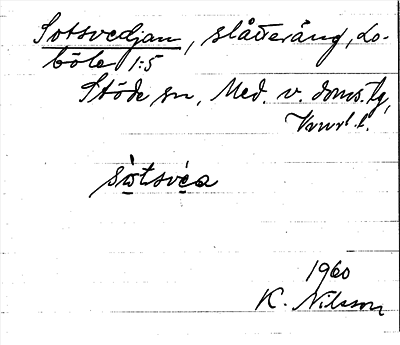 Sotsvedjan, slåtteräng, Lo-
böle 1:5
Stöde sn, Med. v. doms.,
Vnrl. l.
sòtsvéa
1960
K. Nilsson